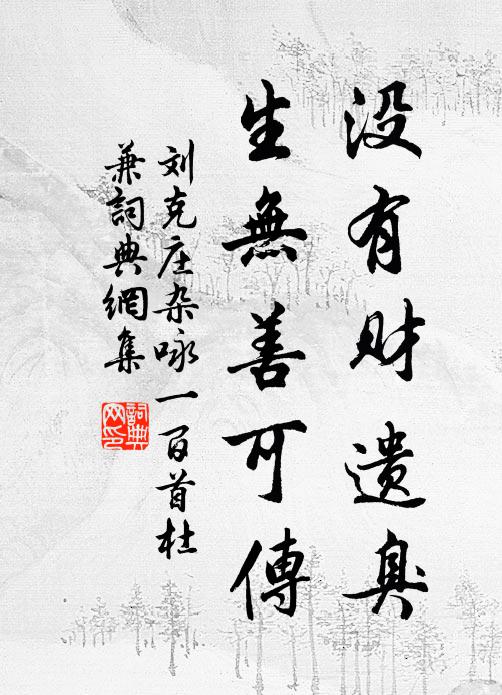 没有财遗臭
生無善可傳
刘克庄杂咏一百首杜
兼詞典網集
詞典
网印